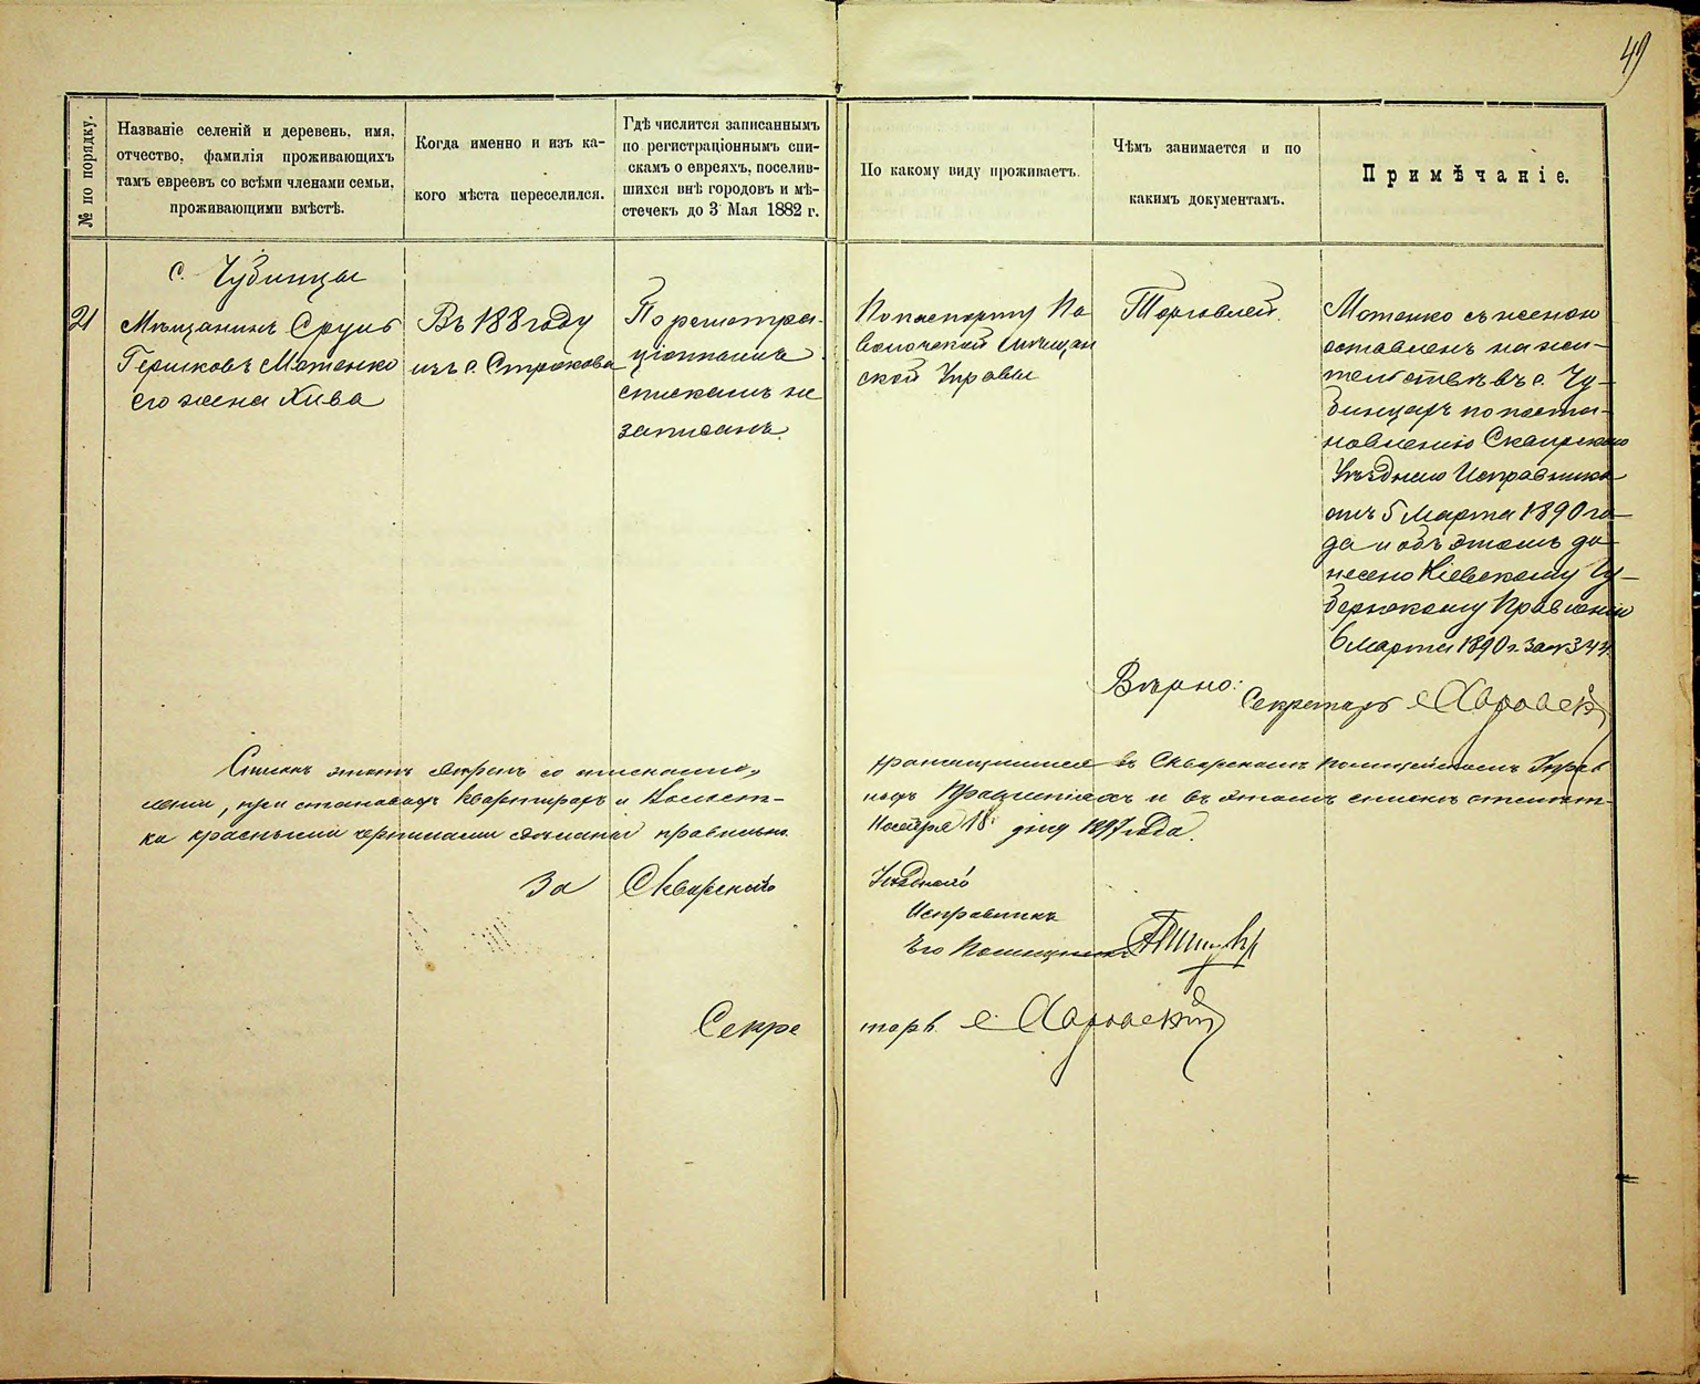 49
№ по порядку.
Названіе селеній и деревень, имя,
отчество, фамилія проживающихъ
тамъ евреевъ со всѣми членами семьи,
проживающими вмѣстѣ.
Когда именно и изъ ка-
кого мѣста переселился.
Гдѣ числится записаннымъ
по регистраціоннымъ спи-
скамъ о евреяхъ, поселив-
шихся внѣ городовъ и мѣ-
стечекъ до 3 Мая 1882 г.
По какому виду проживаетъ.
Чѣмъ занимается и по
какимъ документамъ.
Примѣчаніе.
с. Чубинцы
21
Мѣщанинъ Сруль
Гершковъ Мотенко
его жена Хива
Въ 188 году
изъ с. Строкова
По регистра-
ціоннымъ
спискамъ не
записанъ.
По паспорту Па
волочской Мѣщан
ской Управы
Торговлей.
Мотенко съ женою
оставленъ на жи-
тельствѣ въ с. Чу-
бинцахъ по поста-
новленію Сквирскаго
Уѣзднаго Исправника
отъ 5 Марта 1890 го-
да и объ этомъ до-
несено Кіевскому Гу-
бернскому Правленію
6 Марта 1890 г. за № 344.
Вѣрно:
Секретарь
Списокъ этотъ свѣренъ со списками,
хранящимися въ Сквирскомъ Полицейскомъ Управ
леніи, при становыхъ квартирахъ и Волост-
ныхъ Правленіяхъ и въ этомъ спискѣ отмѣт-
ки красными чернилами сдѣланы правильно.
Ноября 18 дня 1897 года.
За Сквирскаго Уѣзднаго
Исправника
Его Помощникъ
Секре тарь